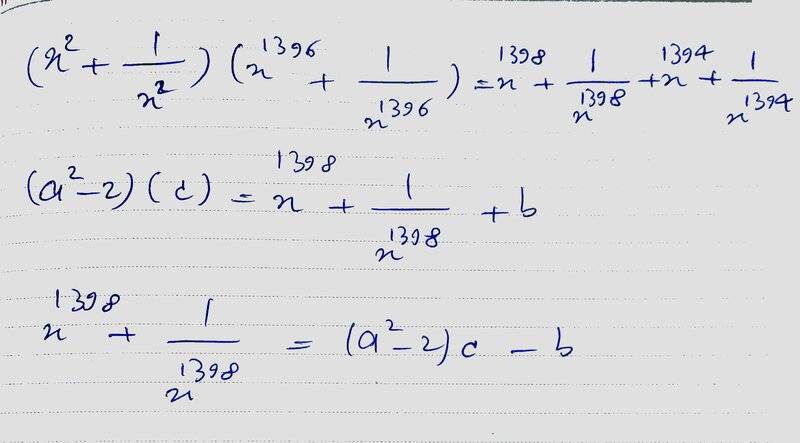 (x² + 1/x²) (x¹³⁹⁶ + 1/x¹³⁹⁶) = x¹³⁹⁸ + 1/x¹³⁹⁸ + x¹³⁹⁴ + 1/x¹³⁹⁴
(a² - 2) (c) = x¹³⁹⁸ + 1/x¹³⁹⁸ + b
x¹³⁹⁸ + 1/x¹³⁹⁸ = (a² - 2) c - b